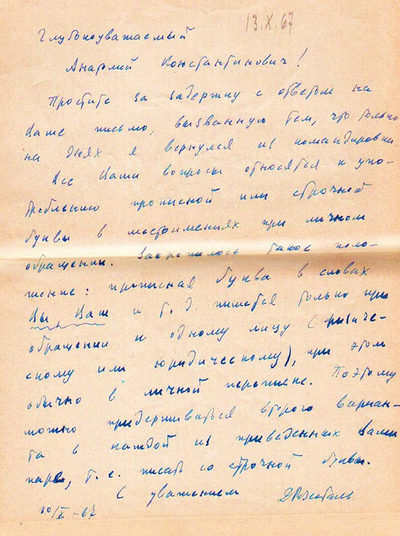 13.X.67
Глубокоуважаемый
Анатолий Константинович!
Простите за задержку с ответом на
Ваше письмо, вызванную тем, что только
на днях я вернулся из командировки
Все Ваши вопросы относятся к упо-
треблению прописной или строчной
буквы в местоимениях при личном
обращении. Закрепилось такое поло-
жение: прописная буква в словах
Вы Ваш и т.д. пишется только при
обращении к одному лицу (физиче-
скому или юридическому), при этом
обычно в личной переписке. Поэтому
можно придерживаться второго вариан-
та в каждой из приведенных Вами
пар, т.е. писать со строчной буквы.
С уважением
10/X-67